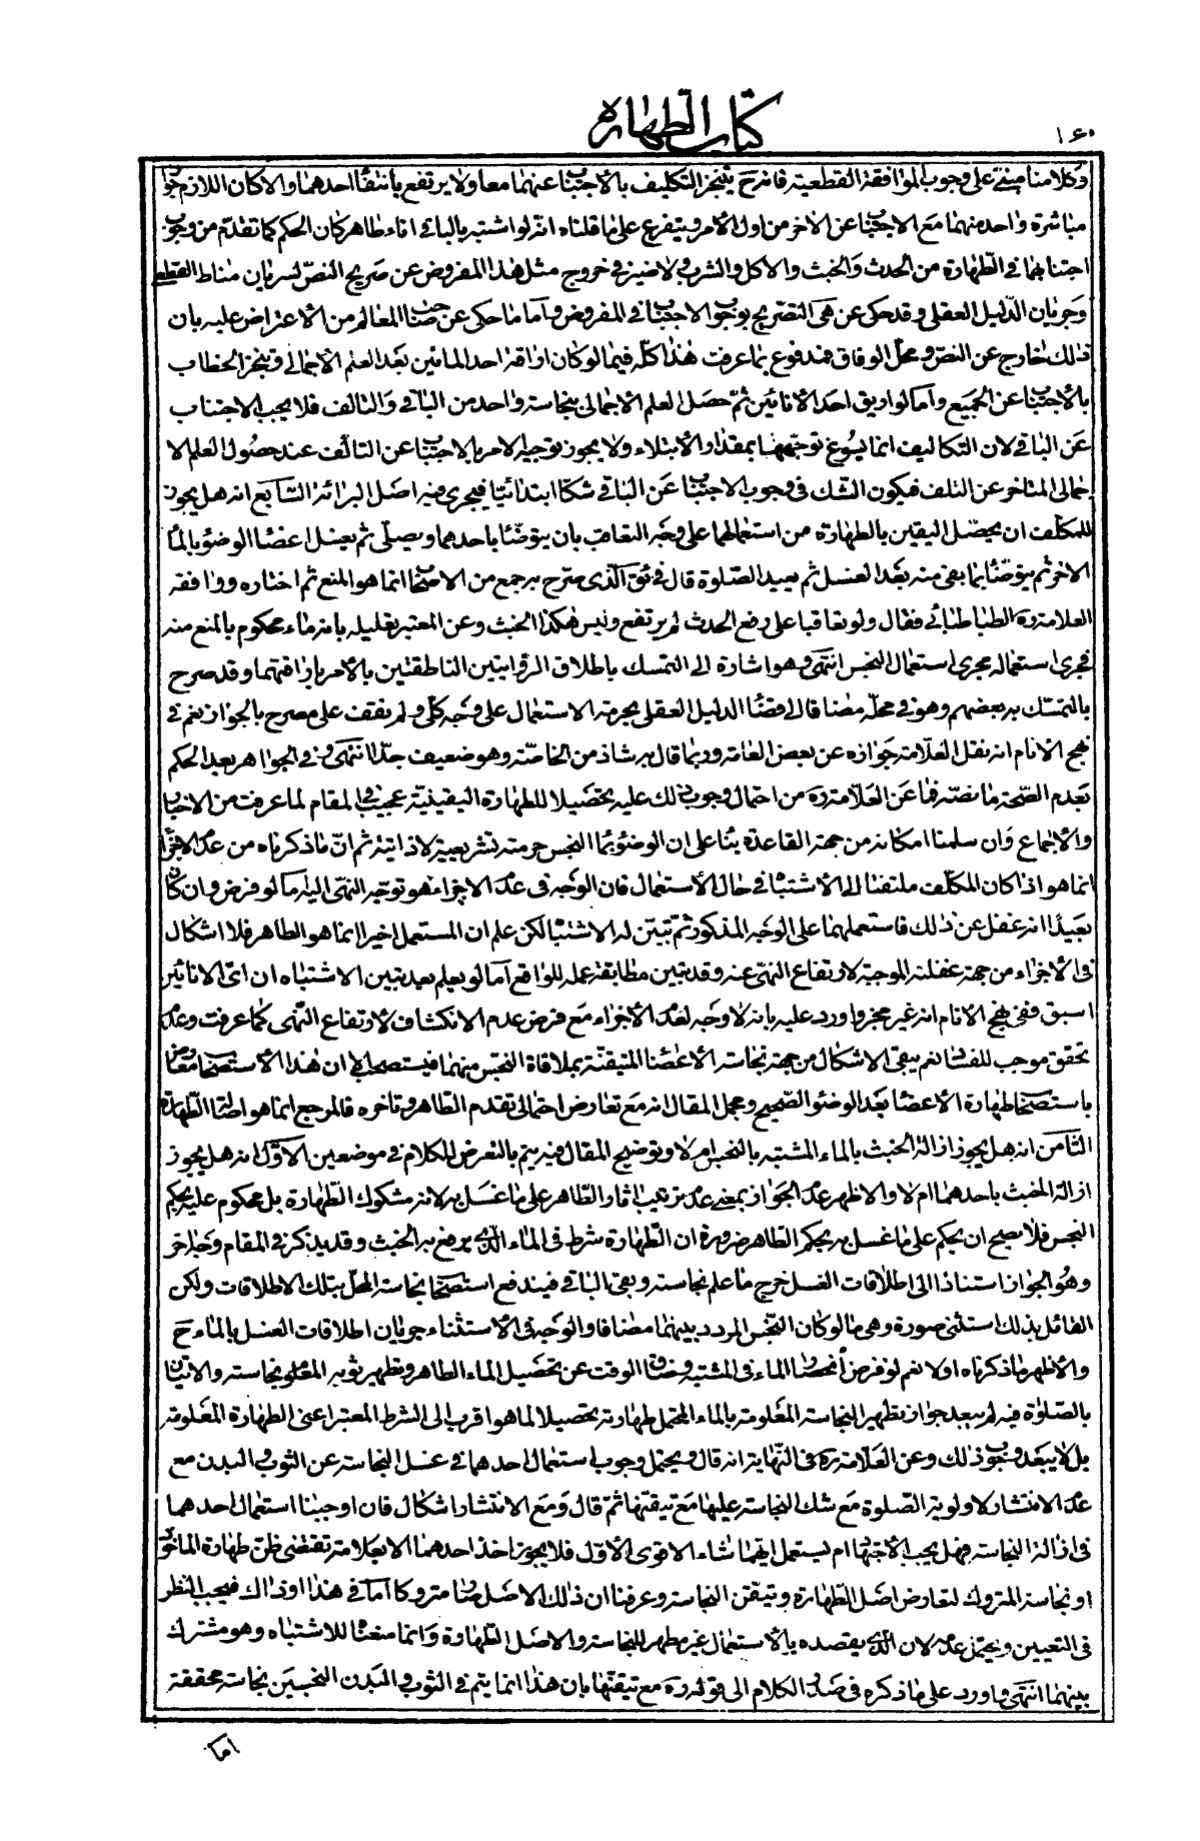 ١٤٠
كتاب الطهارة
وكلامنا مبنى على وجوب الموافقة القطعية فانه ح يتنجز التكليف بالاجتناب عنهما معا ولا يرتفع بانتفاء احدهما والا كان اللازم جواز
مباشرة واحد منهما مع الاجتناب عن الاخر من اول الأمر ويتفرع على ما قلناه انه لو اشتبه بالباقى اناء طاهر كان الحكم كما تقدم من وجوب
اجتنابهما فى الطهارة من الحدث والخبث والاكل والشرب ولا ضير فى خروج مثل هذا المفروض عن صريح النص لسريان مناط القطع
وجريان الدليل العقلى وقد حكى عن هى التصريح بوجوب الاجتناب فى المفروض واما ما حكى عن صاحب المعالم من الأعتراض عليه بان
ذلك خارج عن النص ومحل الوفاق فمدفوع بما عرفت هذا كله فيما لو كان اراقة احد المائين بعد العلم الاجمالى وتنجز الخطاب
بالأجتناب عن الجميع وأما لو اريق احد الانائين ثم حصل العلم الاجمالى بنجاسة واحد من الباقى والتالف فلا يجب الاجتناب
عن الباقى لان التكاليف انما يسوغ توجهها بمقدار الأبتلاء ولا يجوز توجيه الامر بالاجتناب عن التالف عند حصول العلم الا
جمالى المتاخر عن التلف فيكون الشك فى وجوب الاجتناب عن الباقى شكا ابتدائيا فيجرى فيه اصل البرائة السابع انه هل يجوز
للمكلف ان يحصل اليقين بالطهارة من استعمالهما على وجه التعاقب بان يتوضأ باحدهما ويصلى ثم يغسل اعضاء الوضوء بالماء
الاخر ثم يتوضأ بما بقى منه بعد الغسل ثم يعيد الصلوة قال فى ئق الذى صرح به جمع من الاصحاب انما هو المنع ثم اختاره ووافقه
العلامة ره الطباطبائى فقال ولو تعاقبا على رفع الحدث لم يرتفع وليس هكذا الخبث وعن المعتبر تعليله بانه ماء محكوم بالمنع منه
فجرى استعماله مجرى استعمال النجس انتهى وهو اشارة الى التمسك باطلاق الروايتين الناطقتين بالأمر باراقتهما وقد صرح
بالتمسك به بعضهم وهو فى محله مضافا الى اقتضاء الدليل العقلى بحرمة الاستعمال على وجه كلى ولم نقف على مصرح بالجواز نعم فى
نهج الانام انه نقل العلامة جوازه عن بعض العامة وربما قال به شاذ من الخاصة وهو ضعيف جدا انتهى وفى الجواهر بعد الحكم
بعدم الصحة ما نصه فما عن العلامة ره من احتمال وجوب ذلك عليه تحصيلا للطهارة اليقينية عجيب فى المقام لما عرفت من الاخبار
والأجماع وان سلمنا امكانه من جهة القاعدة بناء على ان الوضوء بماء النجس حرمته تشريعية لا ذاتية ثم ان ما ذكرناه من عدم الاجزاء
انما هو اذا كان المكلف ملتفتا الى الأشتباه فى حال الأستعمال فان الوجه فى عدم الاجزاء هو توجه النهى اليه اما لو فرض وان كان
بعيدا انه غفل عن ذلك فاستعملهما على الوجه المذكور ثم تبين له الاشتباه لكن علم ان المستعمل اخيرا انما هو الطاهر فلا اشكال
فى الأجزاء من جهة غفلته الموجبة لارتفاع النهى عنه وقد تبين مطابقة عمله للواقع اما لو يعلم بعد تبين الاشتباه ان اى الانائين
اسبق ففى نهج الانام انه غير مجز واورد عليه بانه لا وجه لعدم الأجزاء مع فرض عدم الانكشاف لارتفاع النهى كما عرفت وعدم
تحقق موجب للفساد نعم يبقى الاشكال من جهة نجاسة الأعضاء المتيقنة بملاقاة النجس منهما فيستصحب الا ان هذا الأستصحاب معارض
باستصحاب طهارة الأعضاء بعد الوضوء الصحيح ومجمل المقال انه مع تعارض احتمالى تقدم الطاهر وتاخره فالمرجع انما هو اصالة الطهارة
الثامن انه هل يجوز ازالة الخبث بالماء المشتبه بالنجس ام لا وتوضيح المقال فيه يتم بالتعرض للكلام فى موضعين الاول انه هل يجوز
ازالة الخبث باحدهما ام لا والاظهر عدم الجواز بمعنى عدم ترتيب اثار الطاهر على ما غسل به لانه مشكوك الطهارة بل محكوم عليه بحكم
النجس فلا يصح ان يحكم على ما غسل به بحكم الطاهر ضرورة ان الطهارة شرط فى الماء الذى يرفع به الخبث وقد يذكر فى المقام وجه اخر
وهو الجواز استنادا الى اطلاقات الغسل خرج ما علم نجاسته وبقى الباقى فيندفع استصحاب نجاسة المحل بتلك الاطلاقات ولكن
القائل بذلك استثنى صورة وهى ما لو كان النجس المردد بينهما مضافا والوجه فى الأستثناء جريان اطلاقات الغسل بالماء ح
والأظهر ما ذكرناه اولا نعم لو فرض انحصار الماء فى المشتبه وضاق الوقت عن تحصيل الماء الطاهر وتطهير ثوبه المعلوم نجاسته والاتيان
بالصلوة فيه لم يبعد جواز تطهير النجاسة المعلومة بالماء المحتمل طهارته تحصيلا لما هو اقرب الى الشرط المعتبر اعنى الطهارة المعلومة
بل لا يبعد وجوب ذلك وعن العلامة ره فى النهاية انه قال ويحتمل وجوب استعمال احدهما فى غسل النجاسة عن الثوب والبدن مع
عدم الانتشار لاولوية الصلوة مع شك النجاسة عليها مع تيقنها ثم قال ومع الانتشار اشكال فان اوجبنا استعمال احدهما
فى ازالة النجاسة فهل يجب الأجتهاد ام يستعمل ايهما شاء الاقوى الأول فلا يجوز اخذ احدهما الا بعلامة تقتضى ظن طهارة الماخوذ
او نجاسة المتروك لتعارض اصل الطهارة وتيقن النجاسة وعرفنا ان ذلك الاصل صار متروكا اما فى هذا او ذاك فيجب النظر
فى التعيين ويحتمل عدمه لان الذى يقصده بالأستعمال غير مطهر للنجاسة والاصل الطهارة وانما منعنا للاشتباه وهو مشترك
بينهما انتهى واورد على ما ذكره فى صدر الكلام الى قوله ره مع تيقنها بان هذا انما يتم فى الثوب والبدن النجسين نجاسة محققة
اما